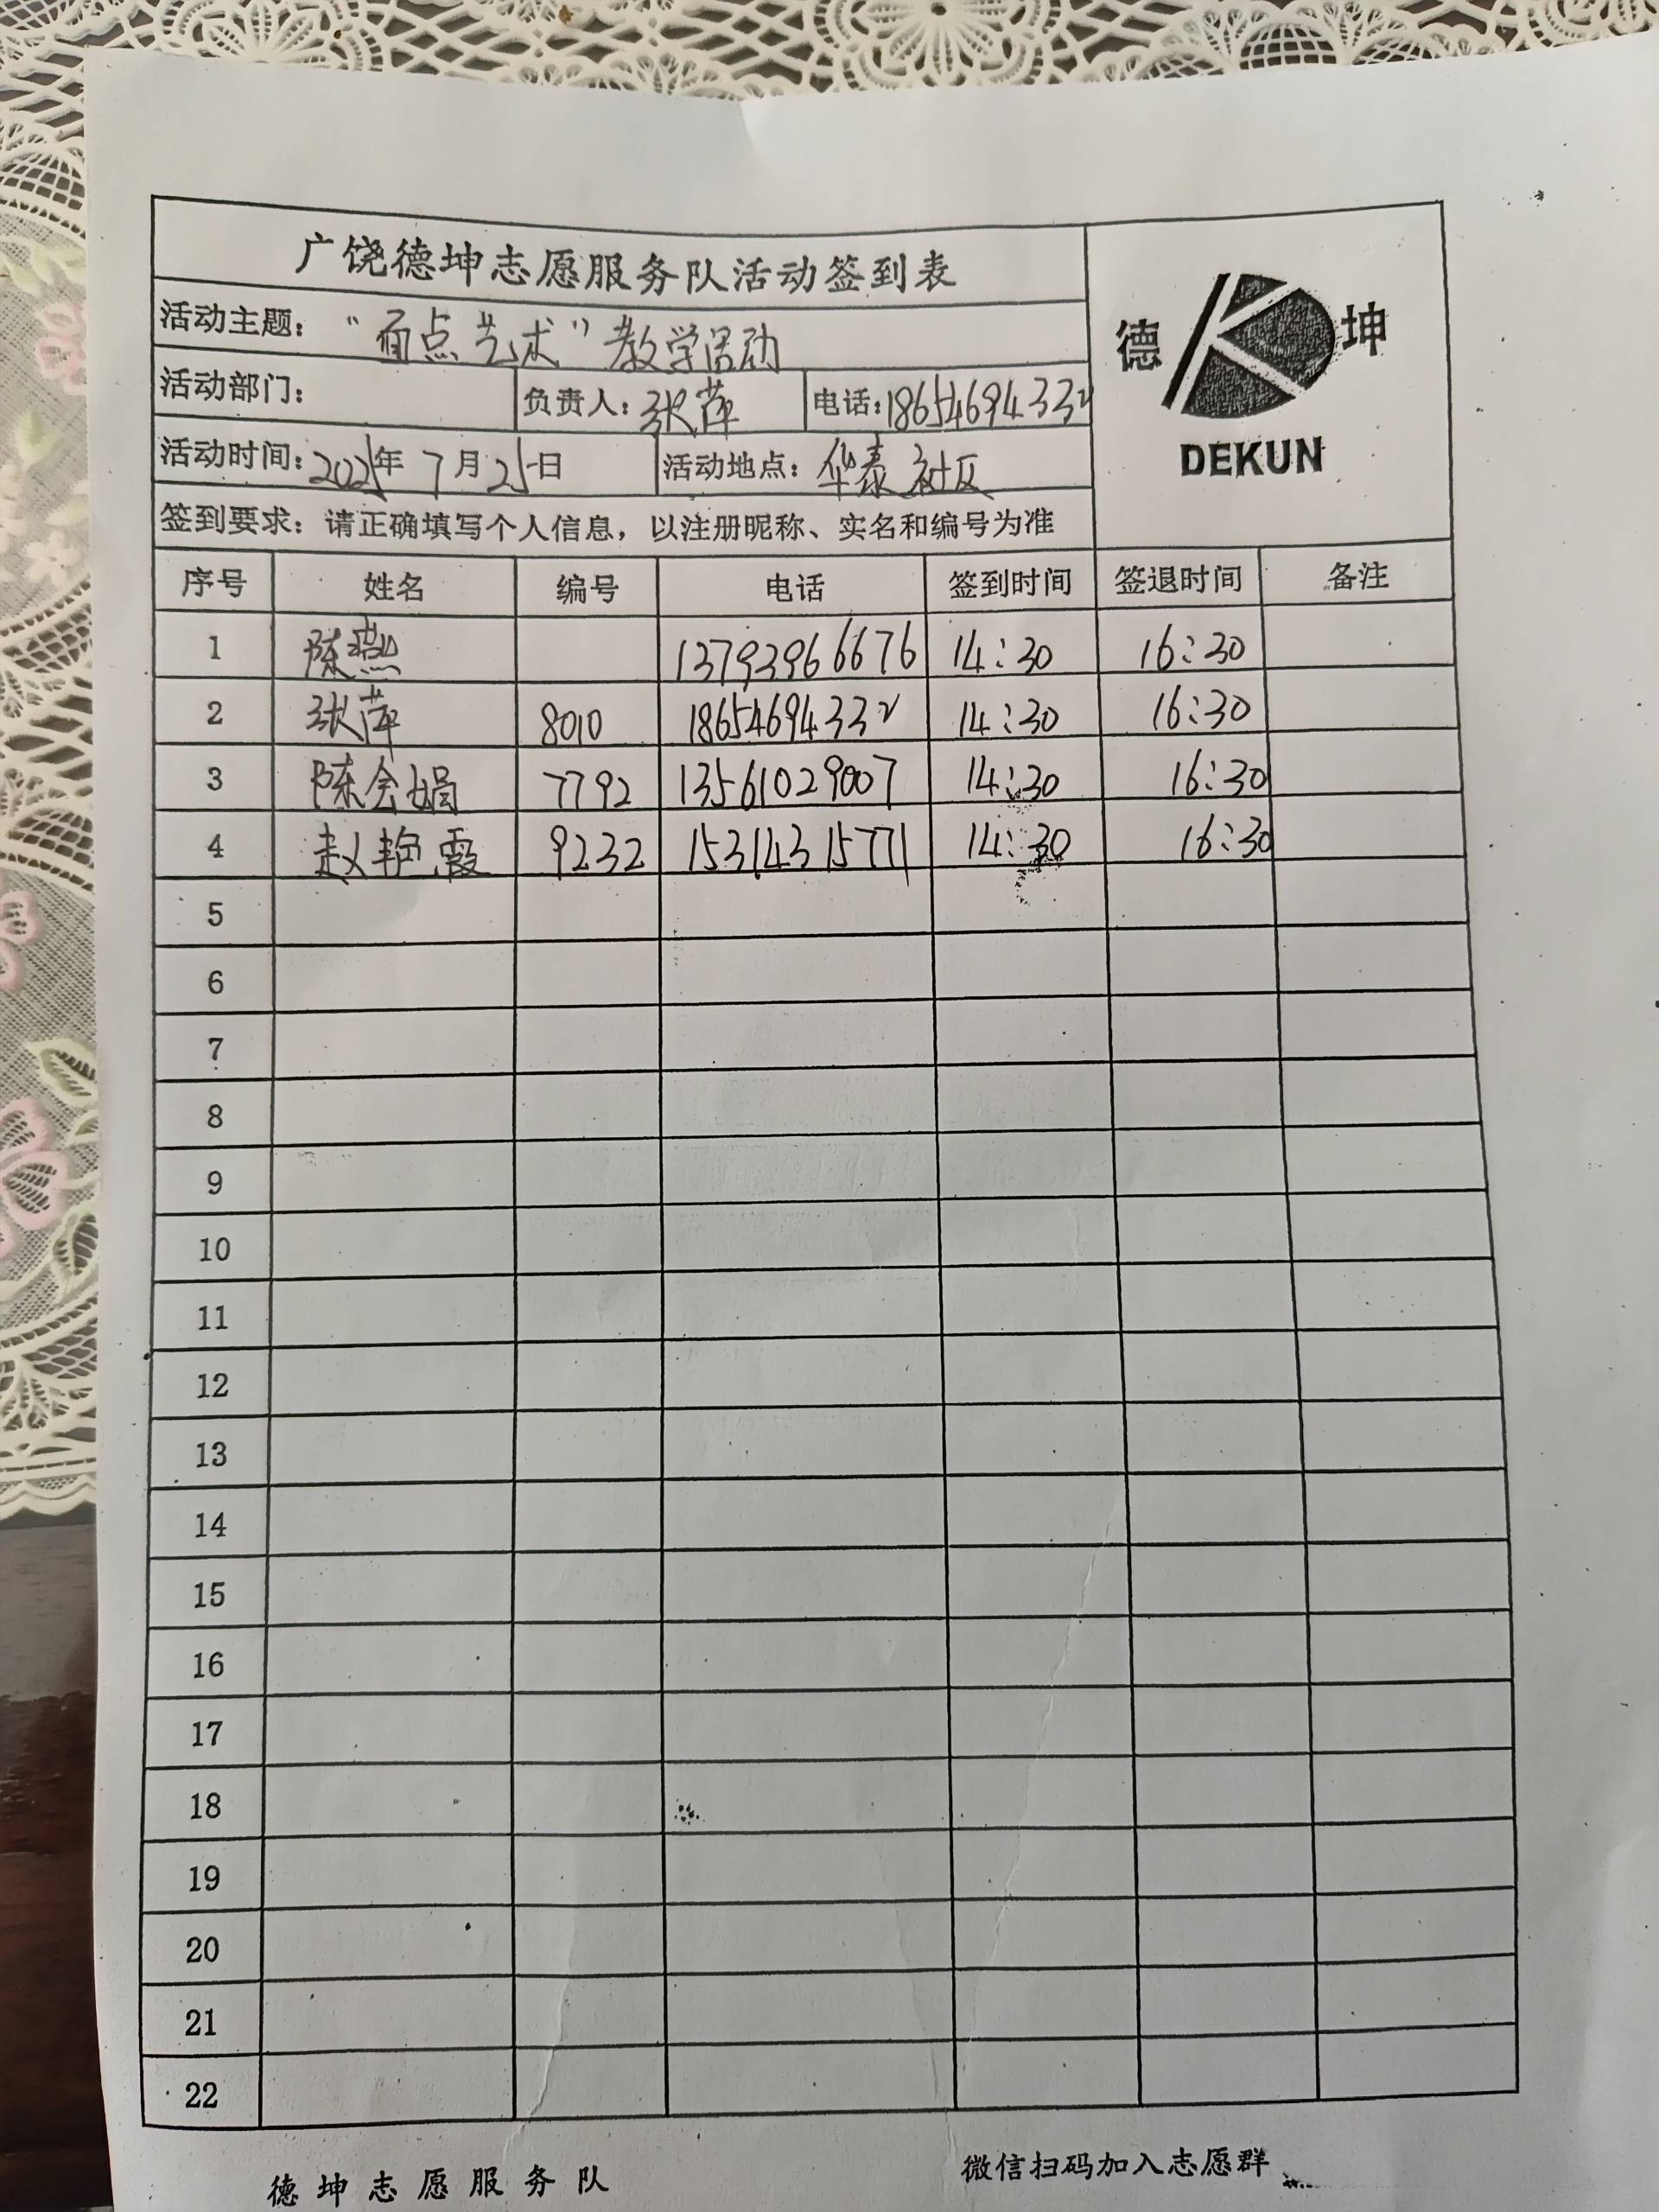 广饶德坤志愿服务队活动签到表
活动主题：“面点艺术”教学活动
德 坤
DEKUN
活动部门： 负责人：张萍 电话：18654694332
活动时间：2025年7月25日 活动地点：华泰社区
签到要求：请正确填写个人信息，以注册昵称、实名和编号为准
序号 姓名 编号 电话 签到时间 签退时间 备注
1 陈燕 13793966676 14:30 16:30
2 张萍 8010 18654694332 14:30 16:30
3 陈会娟 7792 13561029007 14:30 16:30
4 赵艳霞 9232 15314315771 14:30 16:30
5
6
7
8
9
10
11
12
13
14
15
16
17
18
19
20
21
22
德坤志愿服务队 微信扫码加入志愿群